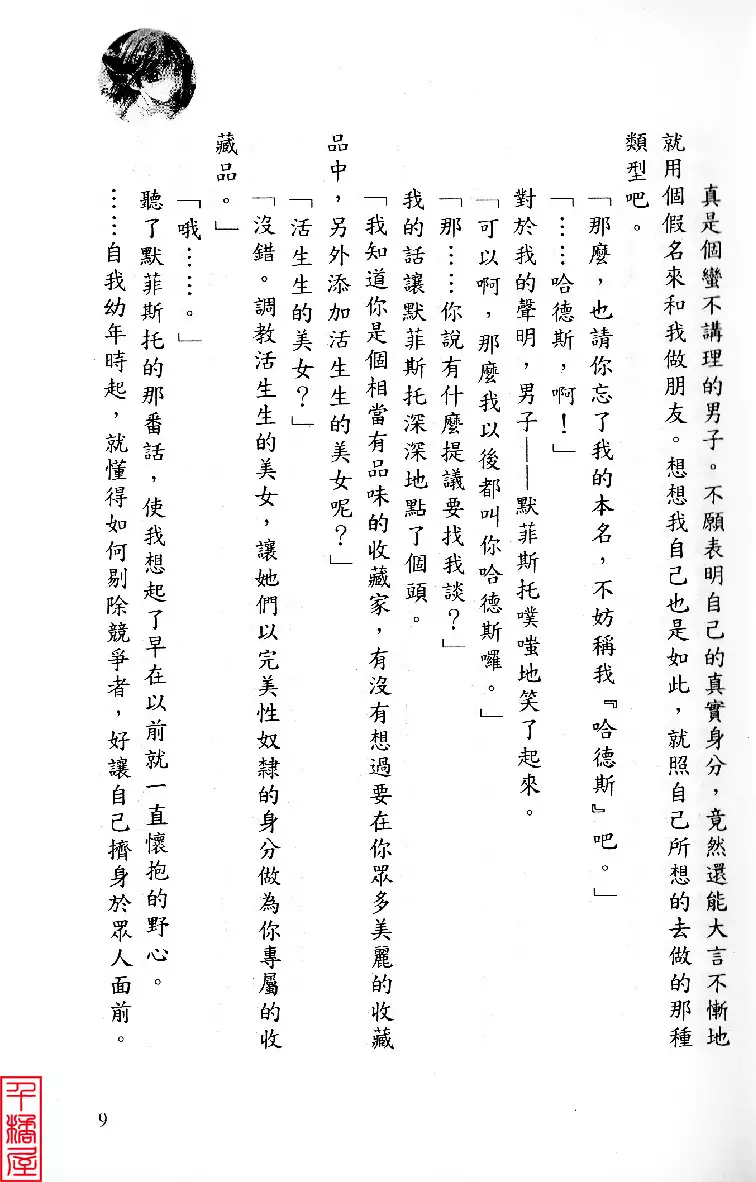 真是個蠻不講理的男子。不願表明自己的真實身分，竟然還能大言不慚地
就用個假名來和我做朋友。想想我自己也是如此，就照自己所想的去做的那種
類型吧。
「那麼，也請你忘了我的本名，不妨稱我『哈德斯』吧。」
「……哈德斯，啊！」
對於我的聲明，男子──默菲斯托噗嗤地笑了起來。
「可以啊，那麼我以後都叫你哈德斯囉。」
「那……你說有什麼提議要找我談？」
我的話讓默菲斯托深深地點了個頭。
「我知道你是個相當有品味的收藏家，有沒有想過要在你眾多美麗的收藏
品中，另外添加活生生的美女呢？」
「活生生的美女？」
「沒錯。調教活生生的美女，讓她們以完美性奴隸的身分做為你專屬的收
藏品。」
「哦……。」
聽了默菲斯托的那番話，使我想起了早在以前就一直懷抱的野心。
……自我幼年時起，就懂得如何剔除競爭者，好讓自己擠身於眾人面前。
9
千橘屋